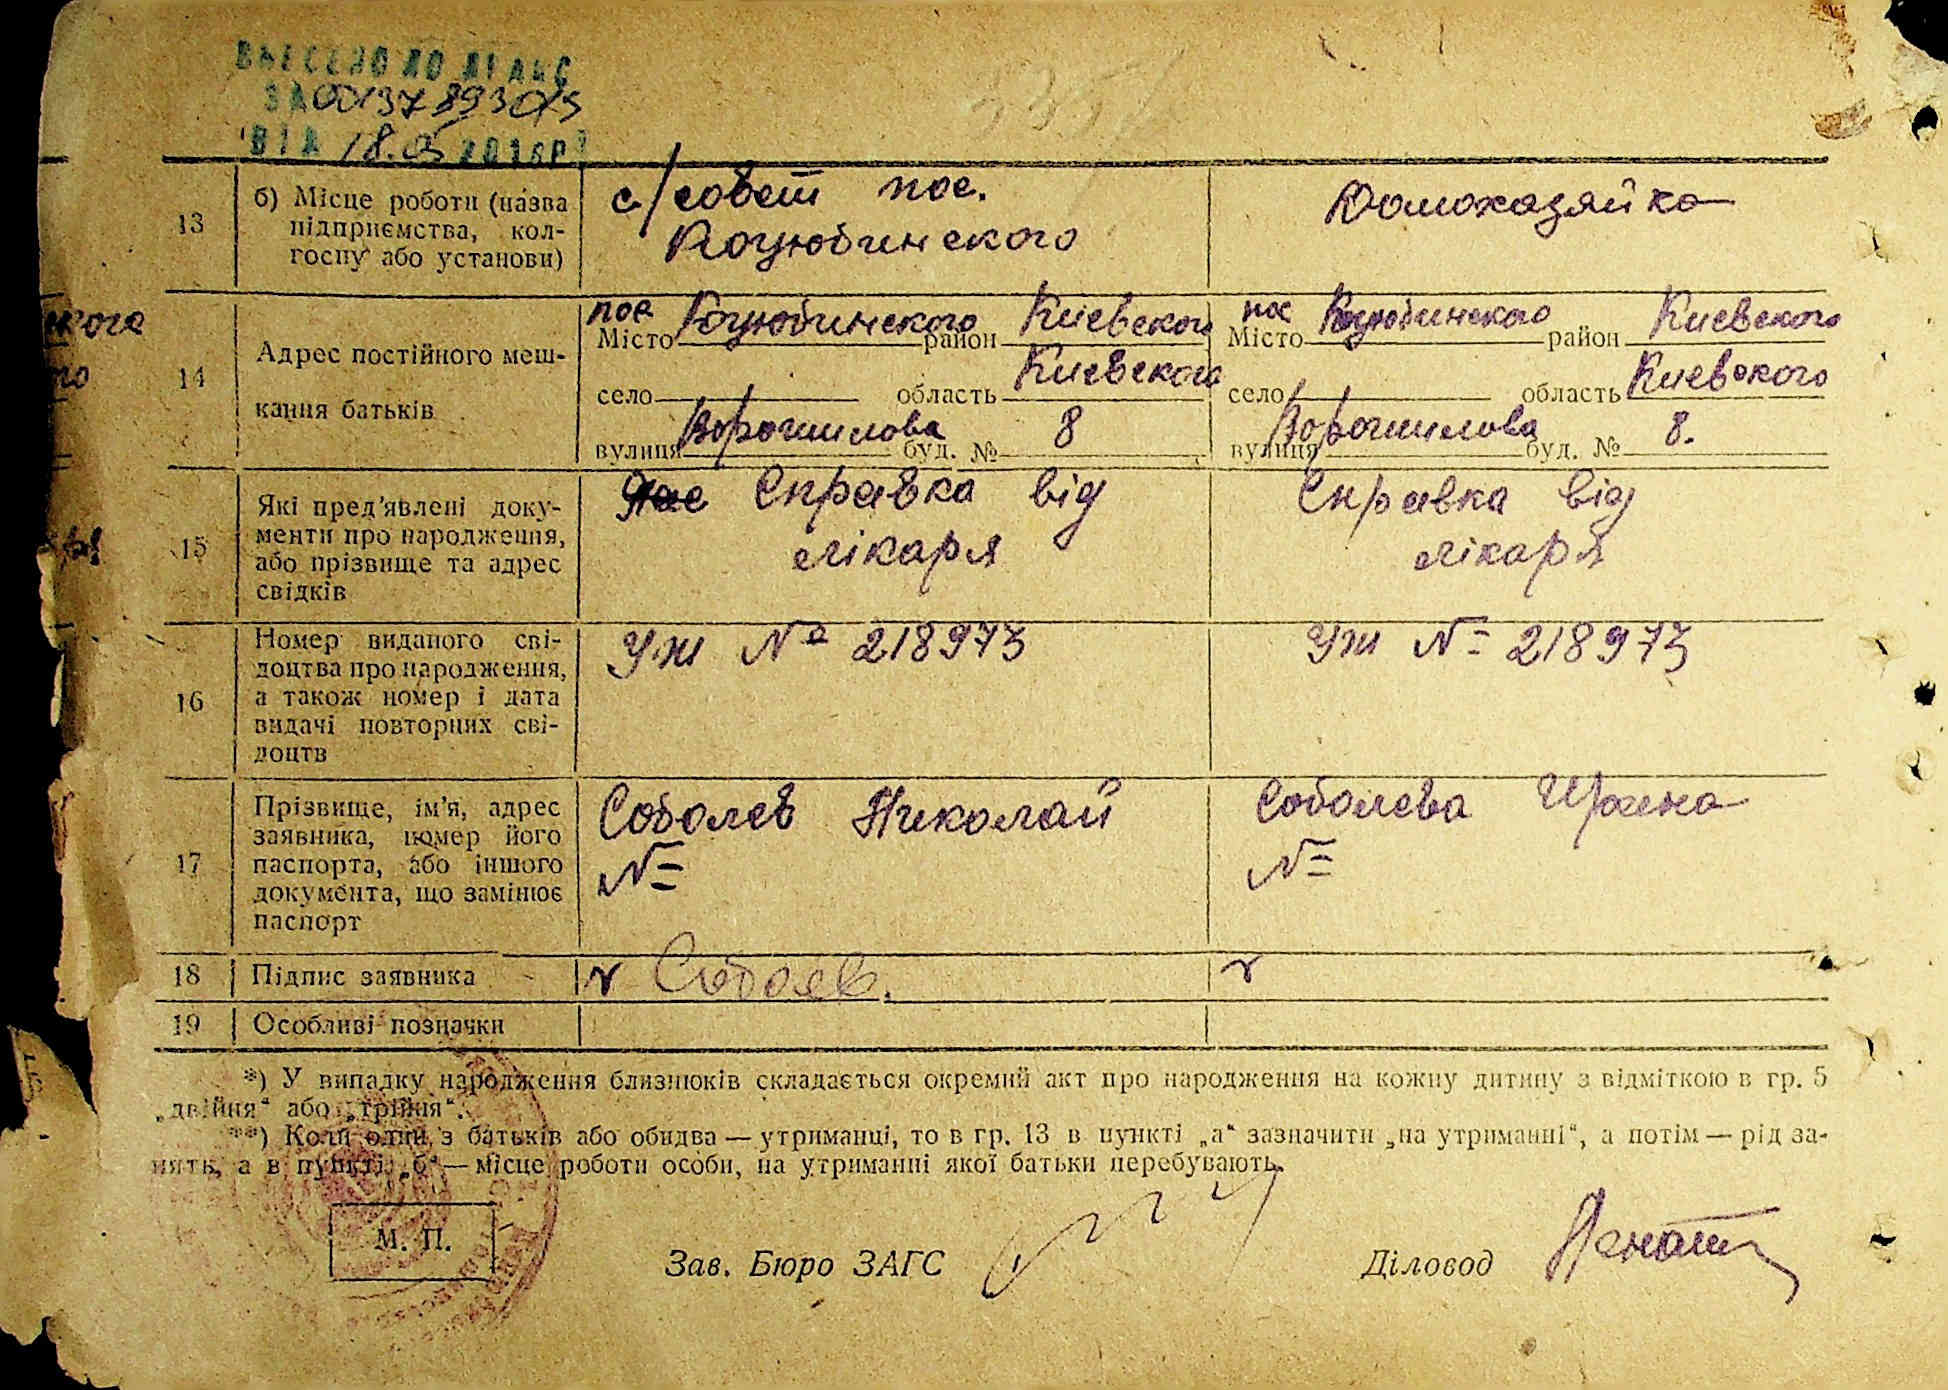 ВНЕСЕНО ДО ДРАЦС
ЗА 00137893015
ВІД 18.05 2016Р
13
б) Місце роботи (назва
підприємства, кол-
госпу або установи)
с/совет пос.
Коцюбинского
Домохазяйка
ского
14
Адрес постійного меш-
кання батьків
пос Коцюбинского Киевского
Місто район
Киевского
село область
Ворошилова 8
вулиця буд. №
пос Коцюбинского Киевского
Місто район
Киевского
село область
Ворошилова 8.
вулиця буд. №
15
Які пред'явлені доку-
менти про народження,
або прізвище та адрес
свідків
Справка від
лікаря
Справка від
лікаря
16
Номер виданого сві-
доцтва про народження,
а також номер і дата
видачі повторних сві-
доцтв
УЖ № 218973
УЖ № 218973
17
Прізвище, ім'я, адрес
заявника, номер його
паспорта, або іншого
документа, що замінює
паспорт
Соболев Николай
№
Соболева Ирина
№
18
Підпис заявника
Соболев.
19
Особливі позначки
*) У випадку народження близнюків складається окремий акт про народження на кожну дитину з відміткою в гр. 5
„двійня“ або „трійня“.
**) Коли один з батьків або обидва — утриманці, то в гр. 13 в пункті „а“ зазначити „на утриманні“, а потім — рід за-
нять, а в пункті „б“ — місце роботи особи, на утриманні якої батьки перебувають.
М. П.
Зав. Бюро ЗАГС
Діловод